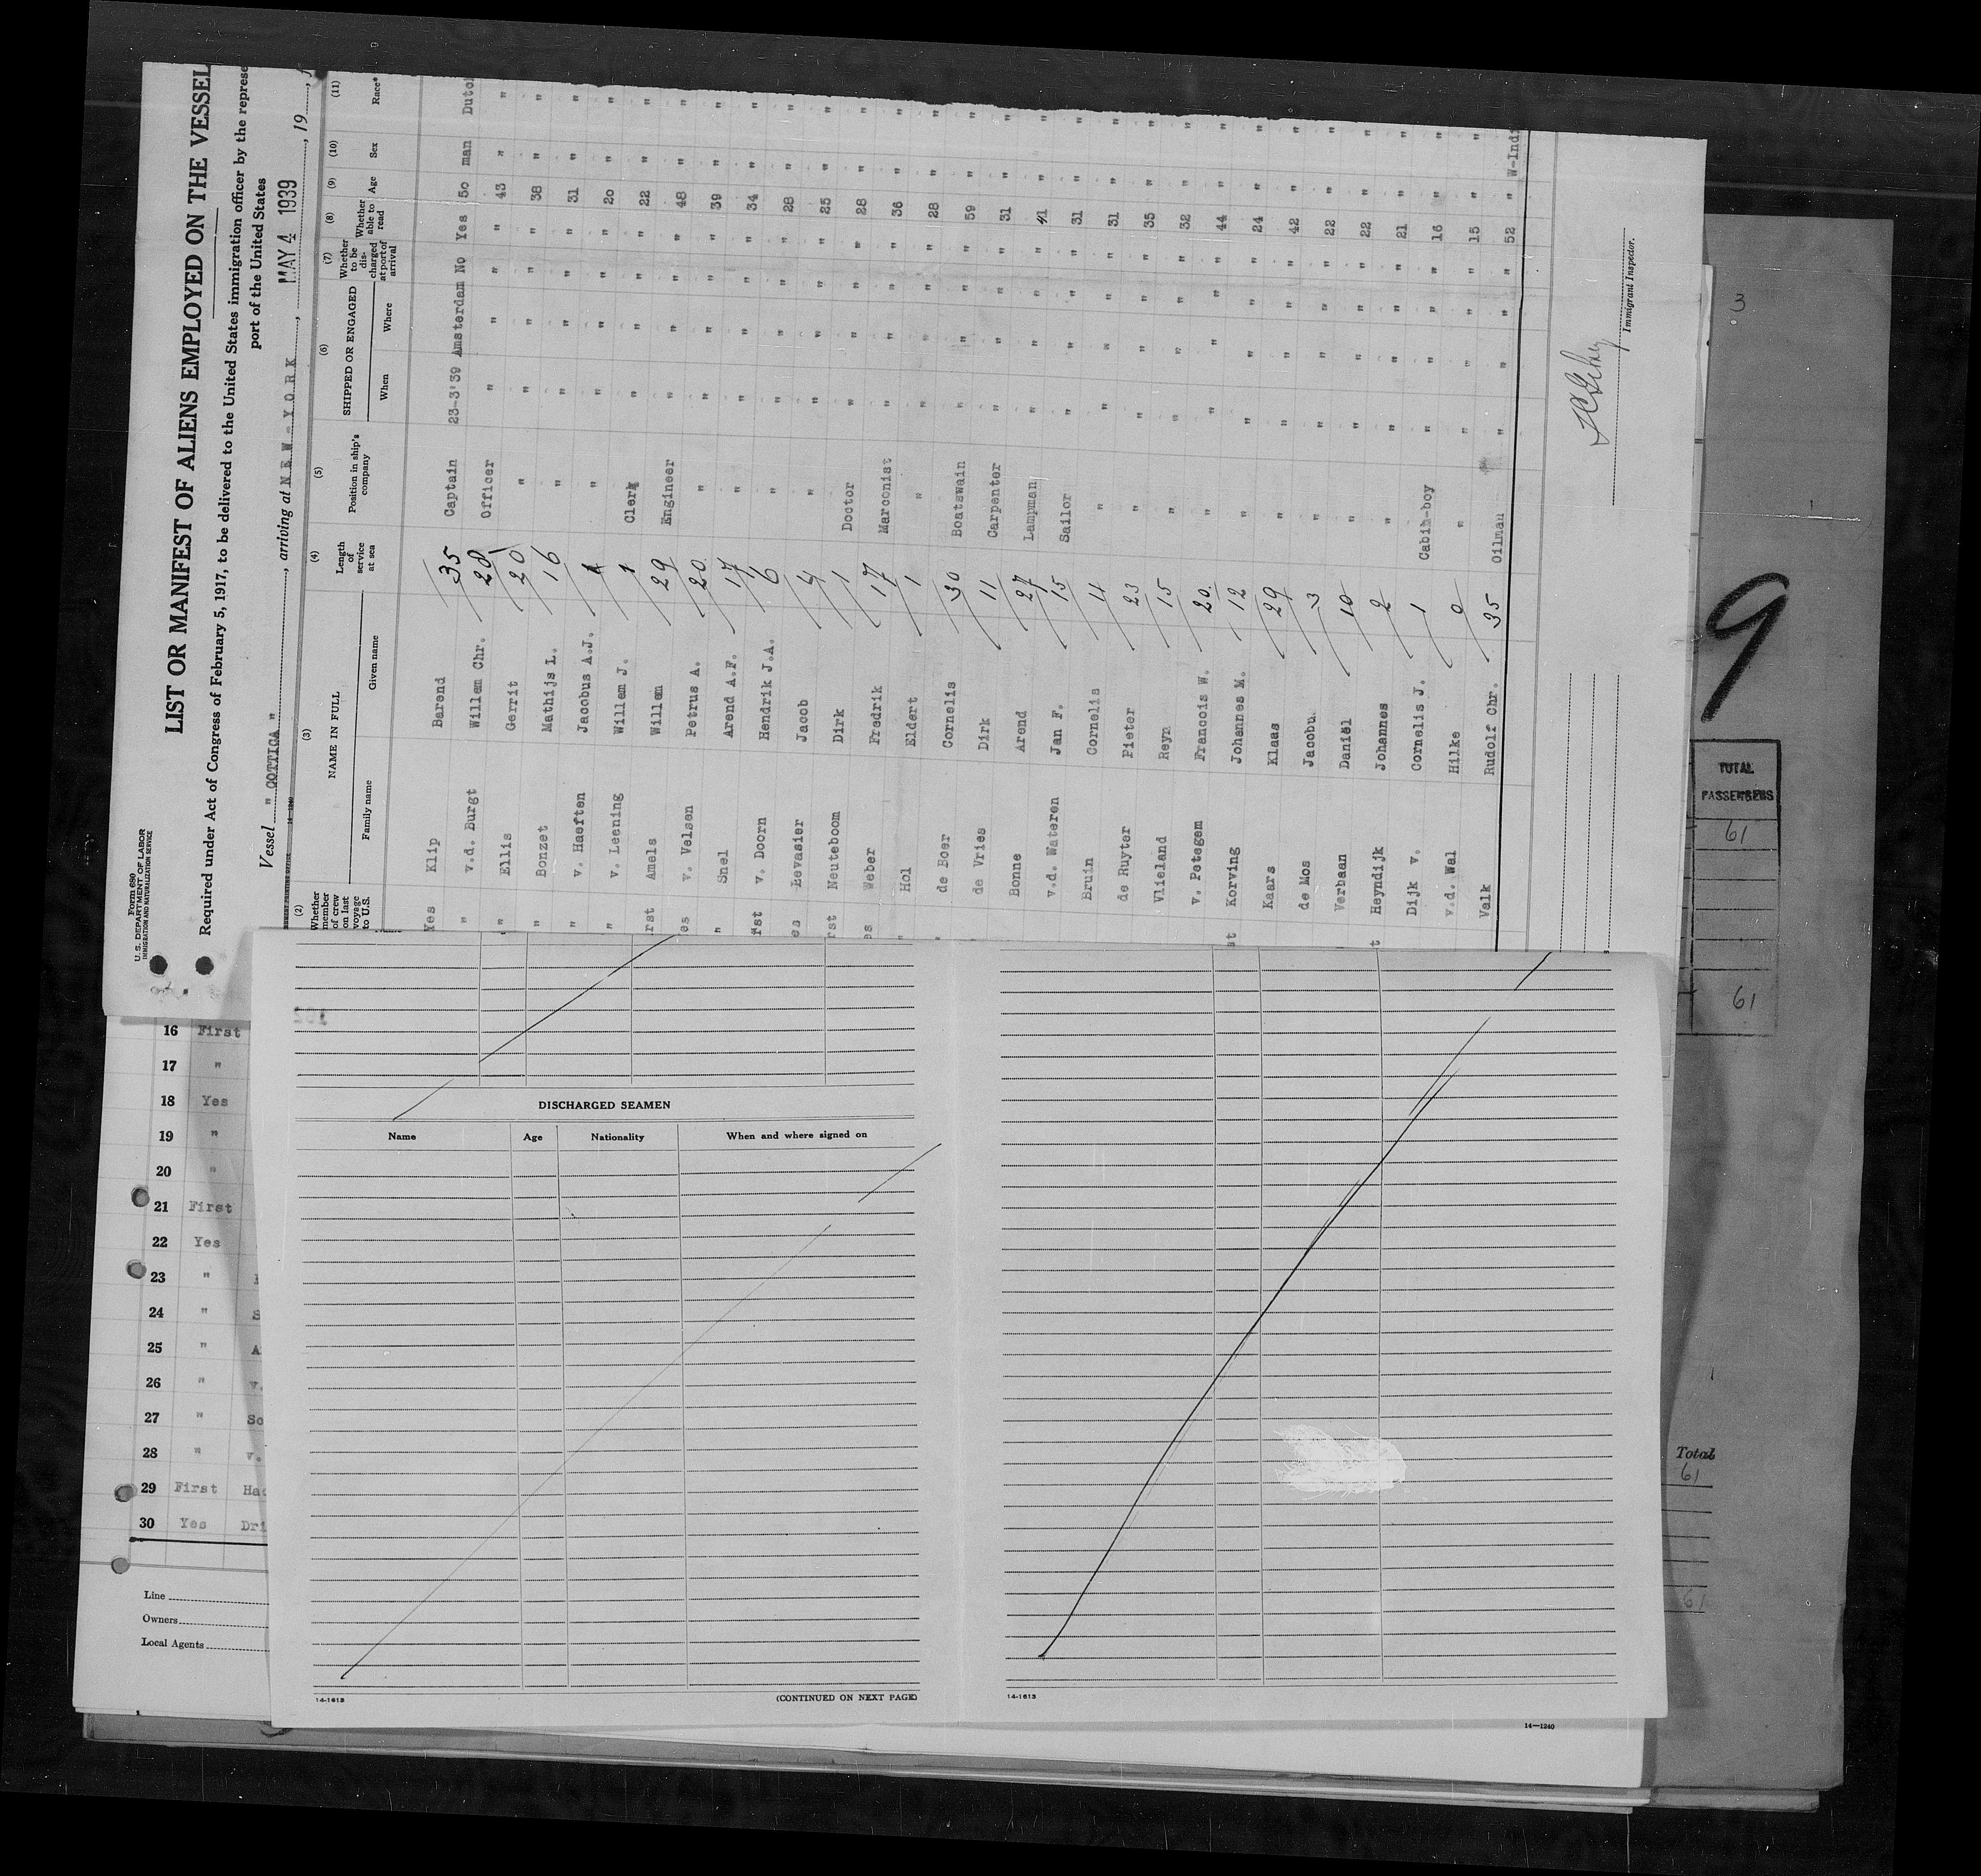 Form 680
U. S. DEPARTMENT OF LABOR
IMMIGRATION AND NATURALIZATION SERVICE
LIST OR MANIFEST OF ALIENS EMPLOYED ON THE VESSEL
Required under Act of Congress of February 5, 1917, to be delivered to the United States immigration officer by the represe
port of the United States
Vessel " COTTICA ", arriving at NEW-YORK, MAY 4 1939, 19
14—1240
(2) (3) (4) (5) (6) (7) (8) (9) (10) (11)
Whether member of crew on last voyage to U.S. NAME IN FULL Length of service at sea Position in ship's company SHIPPED OR ENGAGED Whether to be discharged at port of arrival Whether able to read Age Sex Race*
Family name Given name When Where
Yes Klip Barend 35 Captain 23-3'39 Amsterdam No Yes 50 man Dutc
" v.d. Burgt Willem Chr. 28 Officer " " " " 43 " "
" Ellis Gerrit 20 " " " " " 38 " "
" Bonzet Mathijs L. 16 " " " " " 31 " "
" v. Haeften Jacobus A.J. 1 " " " " " 20 " "
" v. Leening Willem J. 1 Clerk " " " " 22 " "
rst Amels Willem 29 Engineer " " " " 48 " "
es v. Velsen Petrus A. 20 " " " " " 39 " "
" Snel Arend A.F. 17 " " " " " 34 " "
rst v. Doorn Hendrik J.A. 6 " " " " " 28 " "
es Levasier Jacob 4 " " " " " 25 " "
rst Neuteboom Dirk 1 Doctor " " " " 28 " "
es Weber Fredrik 17 Marconist " " " " 36 " "
" Hol Eldert 1 " " " " " 28 " "
" de Boer Cornelis 30 Boatswain " " " " 59 " "
de Vries Dirk 11 Carpenter " " " " 31 " "
Bonne Arend 27 Lampman " " " " 41 " "
v.d. Wateren Jan F. 15 Sailor " " " " 31 " "
Bruin Cornelis 4 " " " " " 31 " "
de Ruyter Pieter 23 " " " " " 35 " "
Vlieland Reyn 15 " " " " " 32 " "
v. Petegem Francois W. 20 " " " " " 44 " "
st Korving Johannes M. 12 " " " " " 24 " "
Kaars Klaas 29 " " " " " 42 " "
de Mos Jacobu. 3 " " " " " 22 " "
Verbaan Daniël 10 " " " " " 22 " "
t Heyndijk Johannes 2 " " " " " 21 " "
Dijk v. Cornelis J. 1 Cabin-boy " " " " 16 " "
v.d. Wal Hilke 0 " " " " " 15 " "
Valk Rudolf Chr. 35 Oilman " " " " 52 " W-Indi
Immigrant Inspector.
3
9
TOTAL
PASSENGERS
61
61
Total
61
61
16 First
17 "
18 Yes
19 "
20 "
21 First
22 Yes
23 "
24 " S
25 " A
26 " v.
27 " So
28 " v.
29 First Ha
30 Yes Dri
Line
Owners
Local Agents
DISCHARGED SEAMEN
Name Age Nationality When and where signed on
14-1613
(CONTINUED ON NEXT PAGE)
14-1613
14—1240